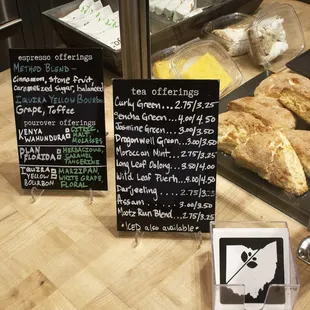 espresso offerings
METHOD BLEND -
Cinnamon, stone fruit,
Caramelized sugar, balanced
IQUIRA YELLOW BOURBON
Grape, Toffee
pourover offerings
KENYA
MWAHUNDURA
CITRUS,
MALT
MOLASSES
PLAN
FLORIDA
HERBACIOUS,
CARAMEL,
TANGERINE
IQUIRA
YELLOW
BOURBON
MARZIPAN,
WHITE GRAPE
FLORAL
tea offerings
Curly Green... 2.75/3.25
Sencha Green... 4.00/4.50
Jasmine Green... 3.00/3.50
Dragonwell Green... 3.00/3.50
Moroccan Mint... 2.75/3.25
Long Leaf Oolong... 3.00/3.50
Wild Leaf Puerh... 4.00/4.50
Darjeeling... 2.75/3.25
Assam... 3.00/3.50
Mootz Run Blend... 2.75/3.25
*ICED also available*